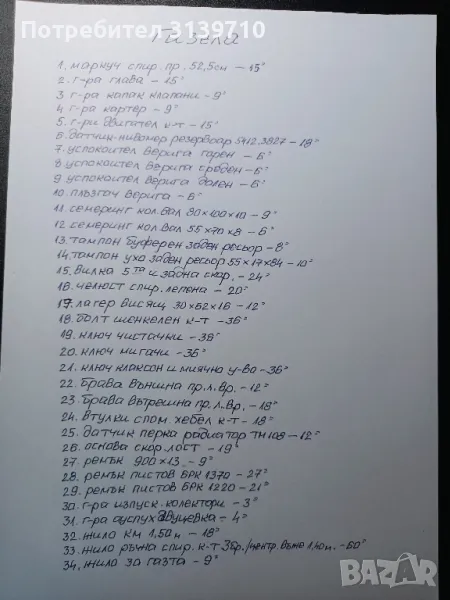 Потребител 3139710
Гизела
1. маркуч спир. пр. 52,5см – 15°
2. г-ра глава – 15°
3 г-ра капак клапани – 9°
4 г-ра картер – 9°
5. г-ри двигател к-т – 15°
6. датчик-нивомер резервоар 5412.3827 – 18°
7. успокоител верига горен – 6°
8 успокоител верига среден – 6°
9 успокоител верига долен – 6°
10. плъзгач верига – 6°
11. семеринг кол. вал 80х100х10 – 9°
12 семеринг кол. вал 55х70х8 – 6°
13. тампон буферен заден ресьор – 8°
14. тампон уха заден ресьор 55х17х84 – 10°
15. вилка 5та и задна скор. – 24°
16. челюст спир. лепена – 20°
17. лагер висящ 30х62х16 – 12°
18. болт шенкелен к-т – 36°
19. ключ чистачки – 36°
20. ключ мигачи – 36°
21. ключ клаксон и миячно у-во – 36°
22. брава външна пр. л. вр. – 12°
23. брава вътрешна пр. л. вр. – 18°
24. втулки спом. хебел к-т – 18°
25. датчик перка радиатор ТМ108 – 12°
26. основа скор. лост – 19°
27. ремък 900х13 – 9°
28. ремък пистов БРК 1370 – 27°
29. ремък пистов БРК 1220 – 21°
30. г-ра изпуск. колектори – 3°
31. г-ра ауспух – 4°
32. жило км 1,50м – 18°
33. жило ръчна спир. к-т 3бр. 1,40м. – 60°
34. жило за газта – 9°
BAZAR